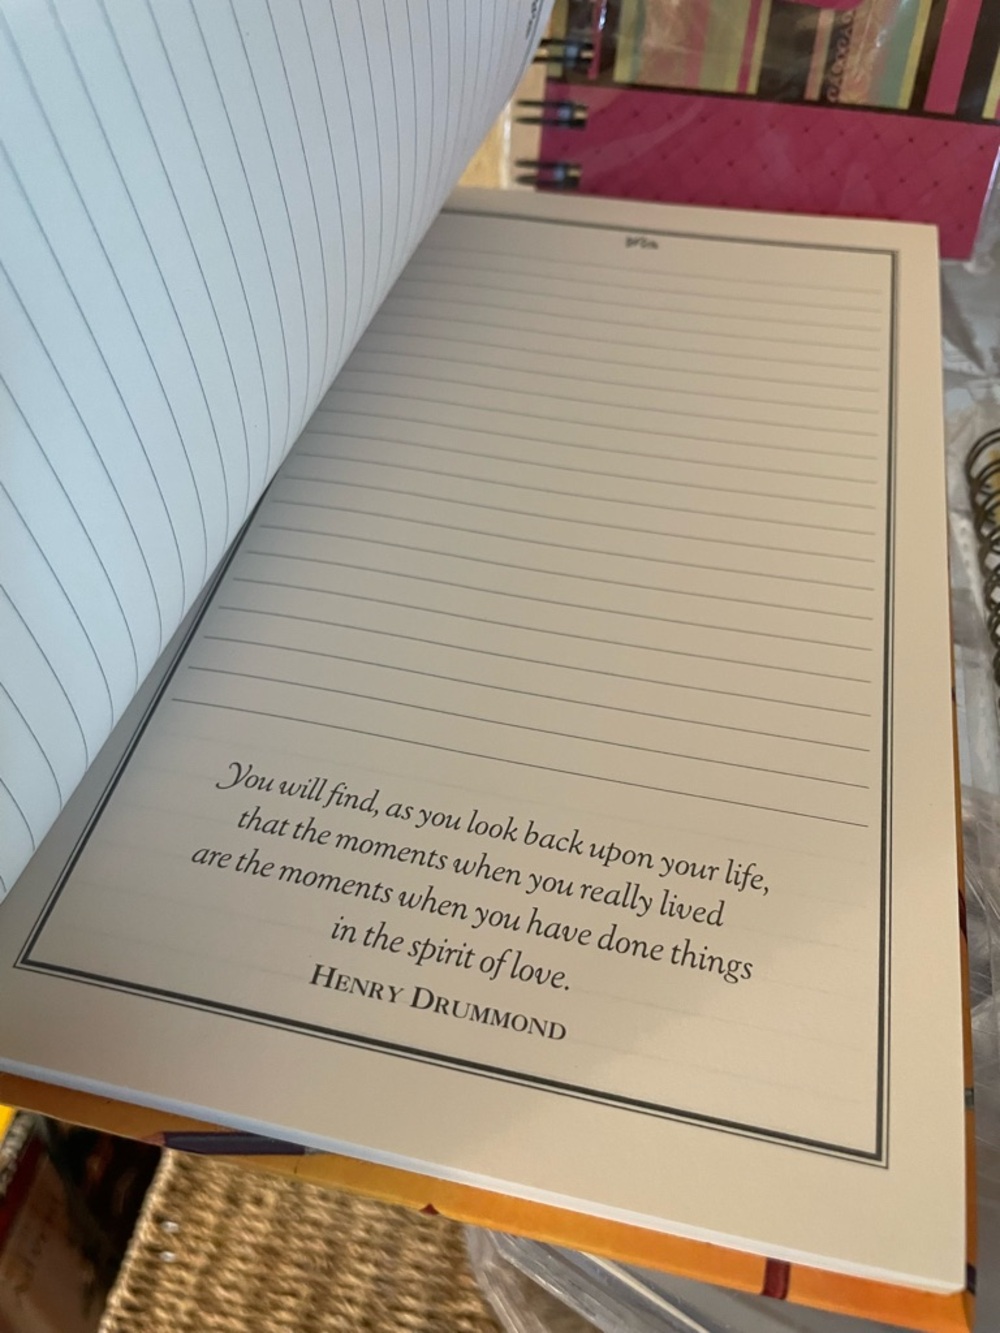 You will find, as you look back upon your life,
that the moments when you really lived
are the moments when you have done things
in the spirit of love.
HENRY DRUMMOND